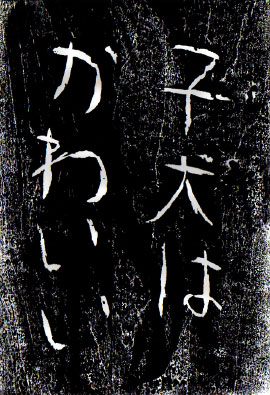 子犬は
かわいい